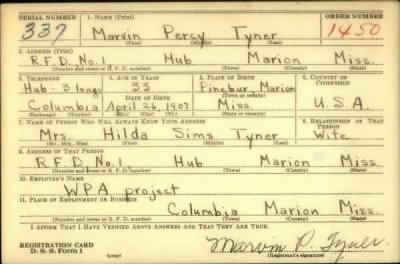 SERIAL NUMBER 1. NAME (Print) ORDER NUMBER
337 Marvin Percy Tyner 1450
(First) (Middle) (Last)
2. ADDRESS (Print)
R.F.D. No. 1 Hub Marion Miss.
(Number and street or R. F. D. number) (Town) (County) (State)
3. TELEPHONE 4. AGE IN YEARS 5. PLACE OF BIRTH 6. COUNTRY OF CITIZENSHIP
Hub - 3 longs 33 Pinebur, Marion
DATE OF BIRTH (Town or county)
Columbia April 26, 1907 Miss U.S.A.
(Exchange) (Number) (Mo.) (Day) (Yr.) (State or country)
7. NAME OF PERSON WHO WILL ALWAYS KNOW YOUR ADDRESS 8. RELATIONSHIP OF THAT PERSON
Mrs. Hilda Sims Tyner Wife
(Mr., Mrs., Miss) (First) (Middle) (Last)
9. ADDRESS OF THAT PERSON
R.F.D. No. 1. Hub Marion Miss.
(Number and street or R. F. D. number) (Town) (County) (State)
10. EMPLOYER'S NAME
WPA project
11. PLACE OF EMPLOYMENT OR BUSINESS
Columbia Marion Miss.
(Number and street or R. F. D. number) (Town) (County) (State)
I AFFIRM THAT I HAVE VERIFIED ABOVE ANSWERS AND THAT THEY ARE TRUE.
REGISTRATION CARD
D. S. S. Form 1 (over) Marvin P. Tyner
(Registrant's signature)